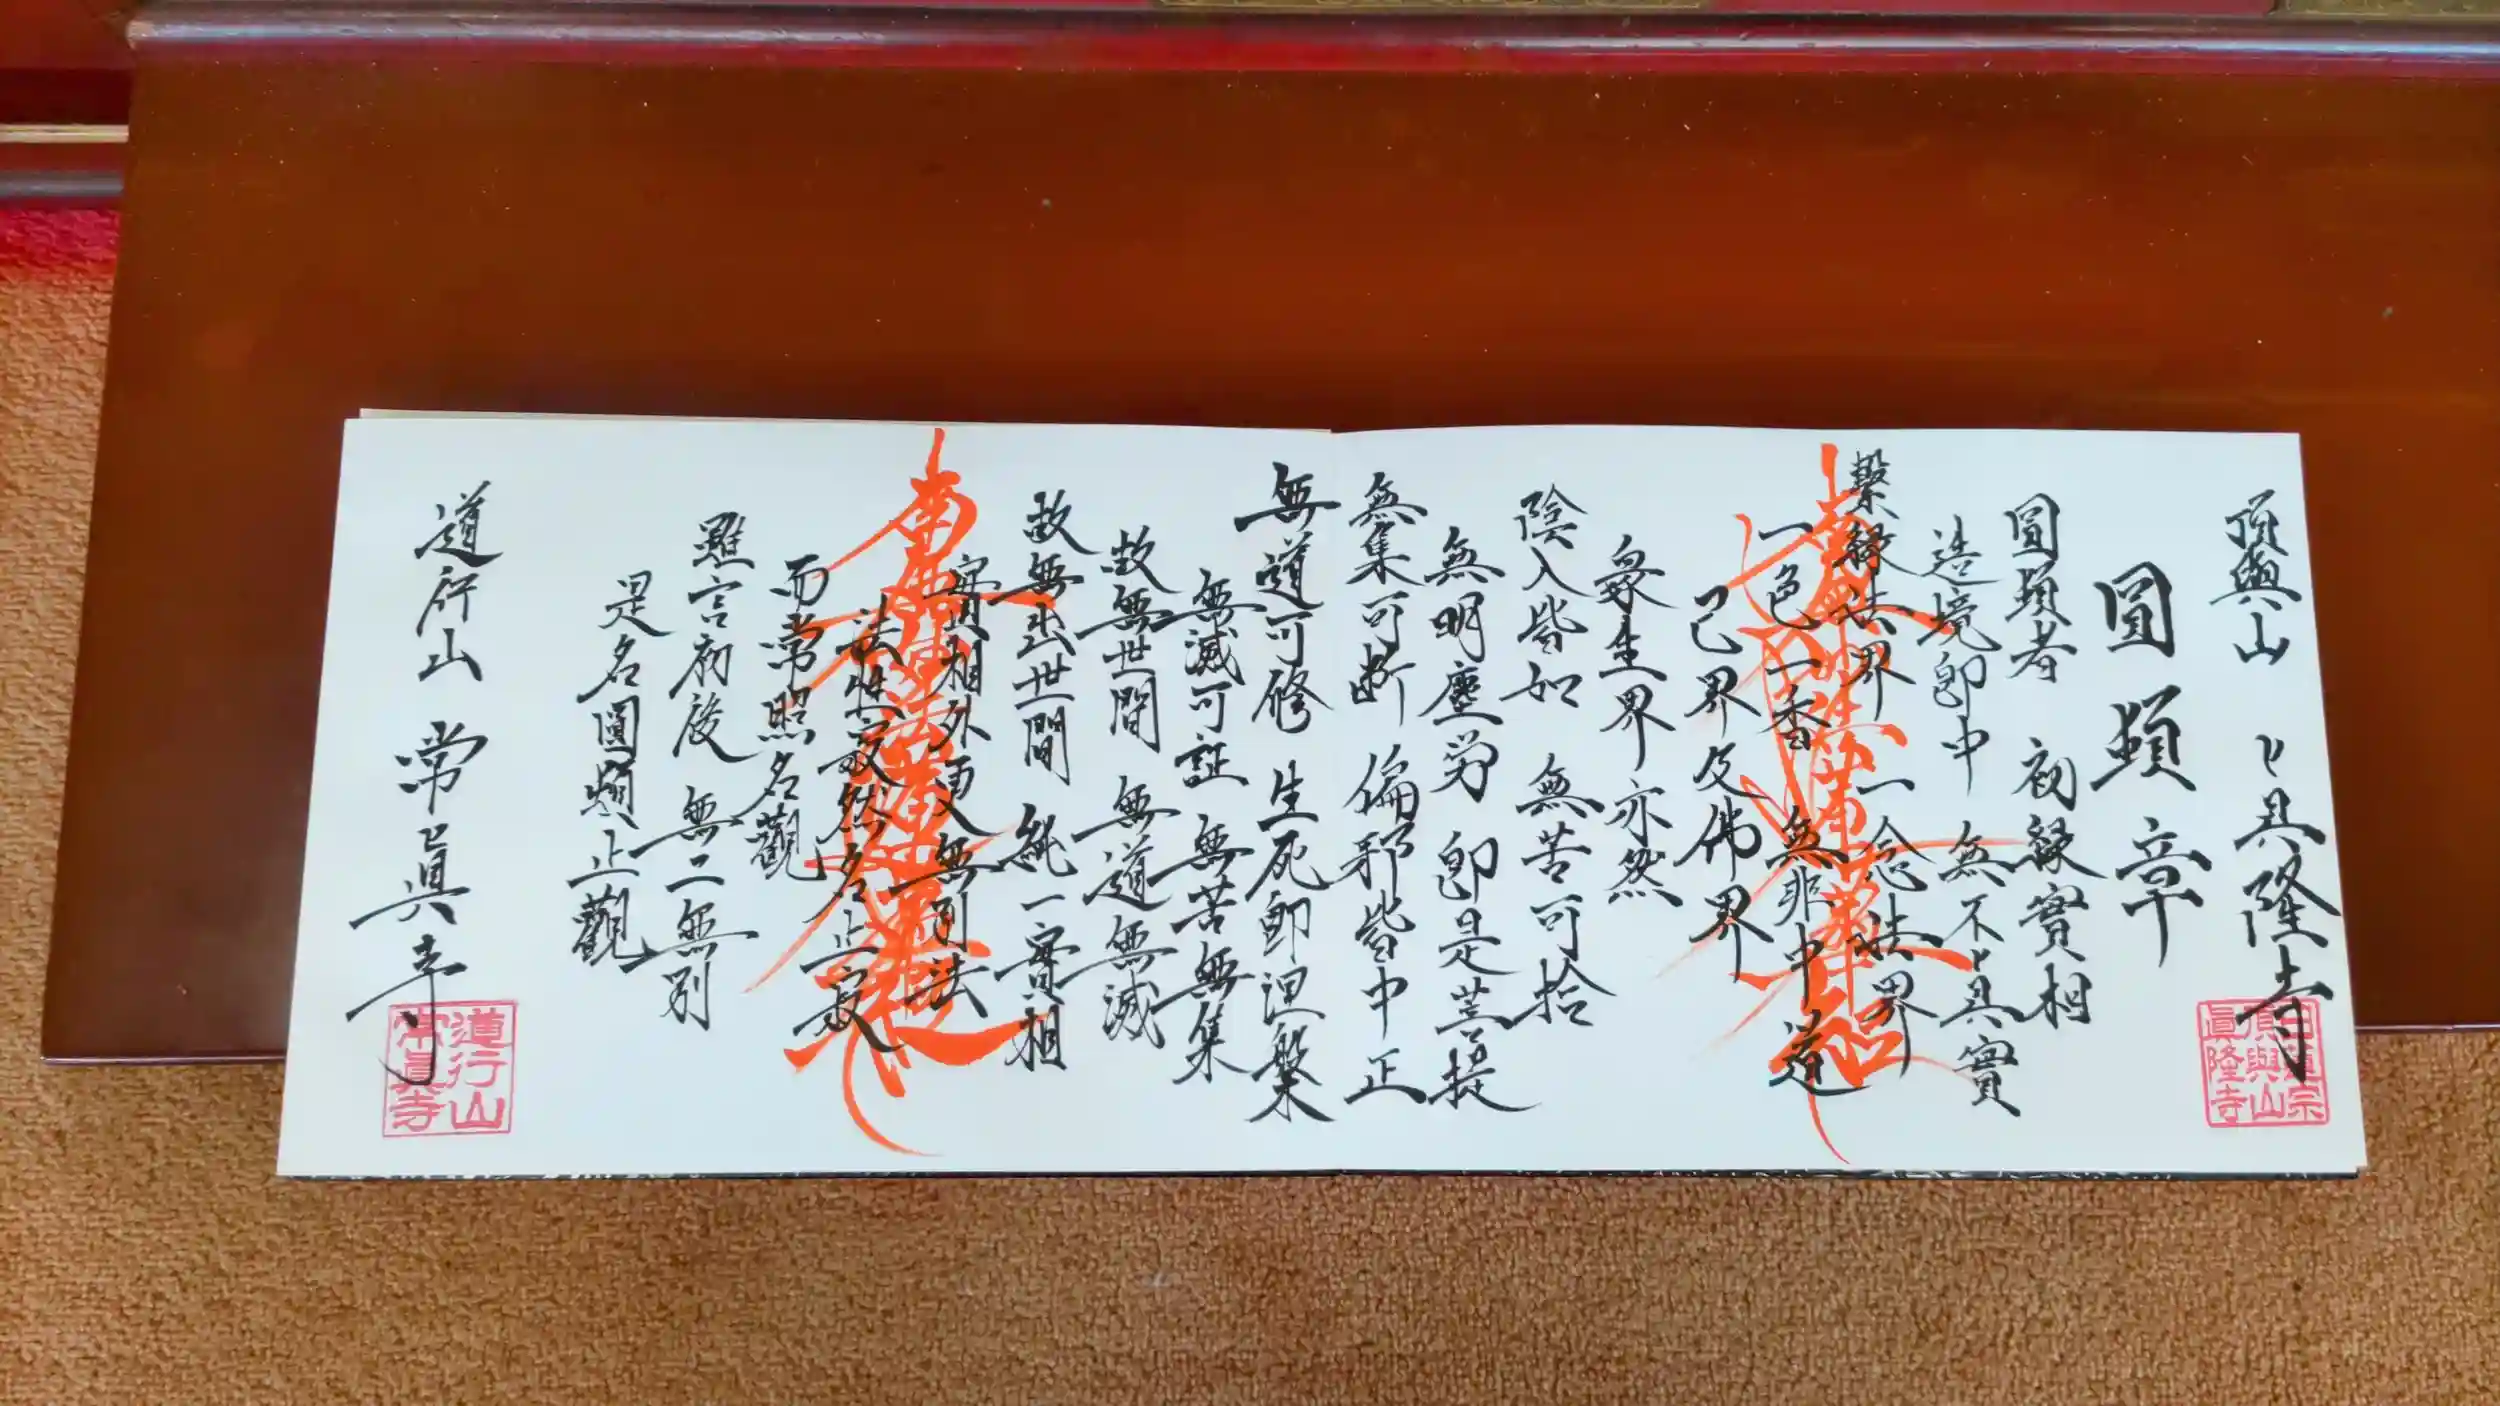 頂輿山 眞隆寺
圓頓章
圓頓者 初緣實相
造境即中 無不真實
繫緣法界 一念法界
一色一香 無非中道
己界及佛界
衆生界亦然
陰入皆如 無苦可捨
無明塵労 即是菩提
無集可断 偏邪皆中正
無道可修 生死即涅槃
無滅可証 無苦無集
故無世間 無道無滅
故無出世間 純一實相
實相外更無別法
法性寂然名止寂
而常照名觀
雖言初後 無二無別
是名圓頓止觀
道行山 常眞寺
日蓮宗
頂輿山
眞隆寺
道行山
常眞寺